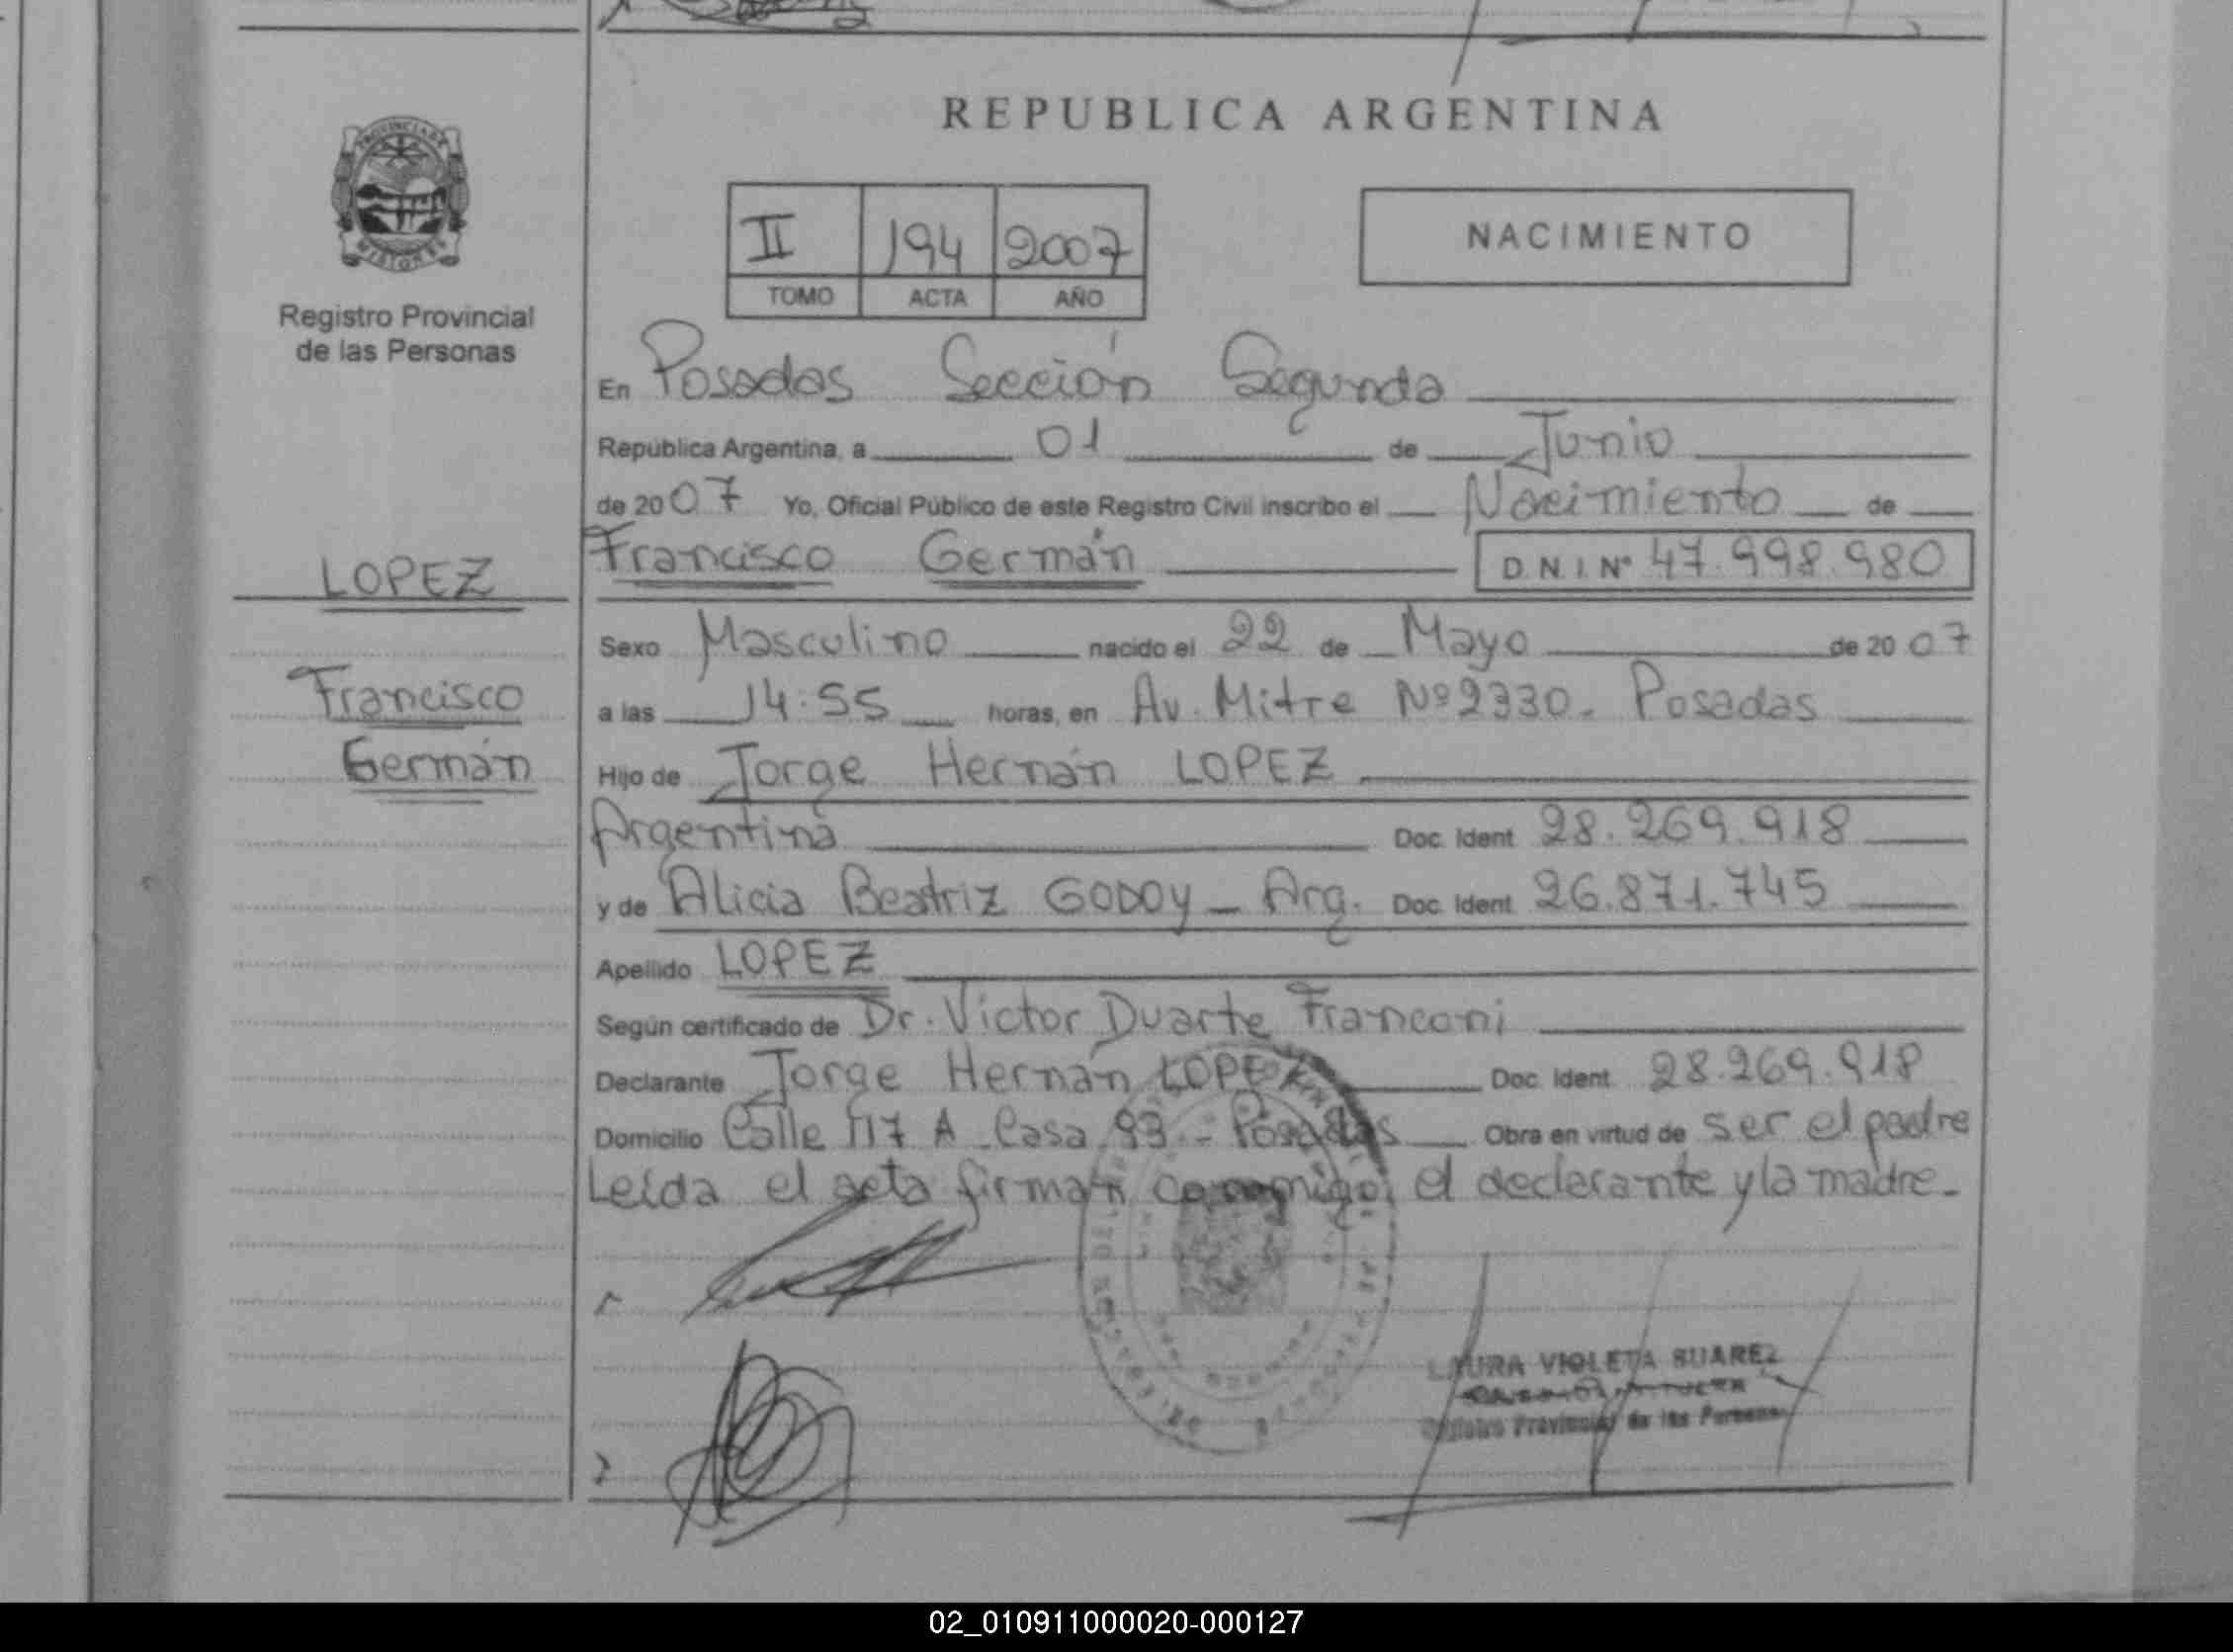 PROVINCIA DE
MISIONES
Registro Provincial
de las Personas
LOPEZ
Francisco
Germán
REPUBLICA ARGENTINA
II 194 2007
TOMO ACTA AÑO
NACIMIENTO
En Posadas Sección Segunda
República Argentina, a 01 de Junio
de 2007 Yo, Oficial Público de este Registro Civil inscribo el Nacimiento de
Francisco Germán D.N.I. Nº 47.998.980
Sexo Masculino nacido el 22 de Mayo de 2007
a las 14:55 horas, en Av. Mitre Nº 2330. Posadas
Hijo de Jorge Hernán LOPEZ
Argentina Doc. Ident. 28.269.918
y de Alicia Beatriz GODOY - Arg. Doc. Ident. 26.871.745
Apellido LOPEZ
Según certificado de Dr. Victor Duarte Franconi
Declarante Jorge Hernán LOPEZ Doc. Ident. 28.269.918
Domicilio Calle 117 A Casa 93 - Posadas Obra en virtud de ser el padre
Leída el acta firman conmigo el declarante y la madre.
LAURA VIOLETA SUAREZ
Registro Provincial de las Personas
02_010911000020-000127